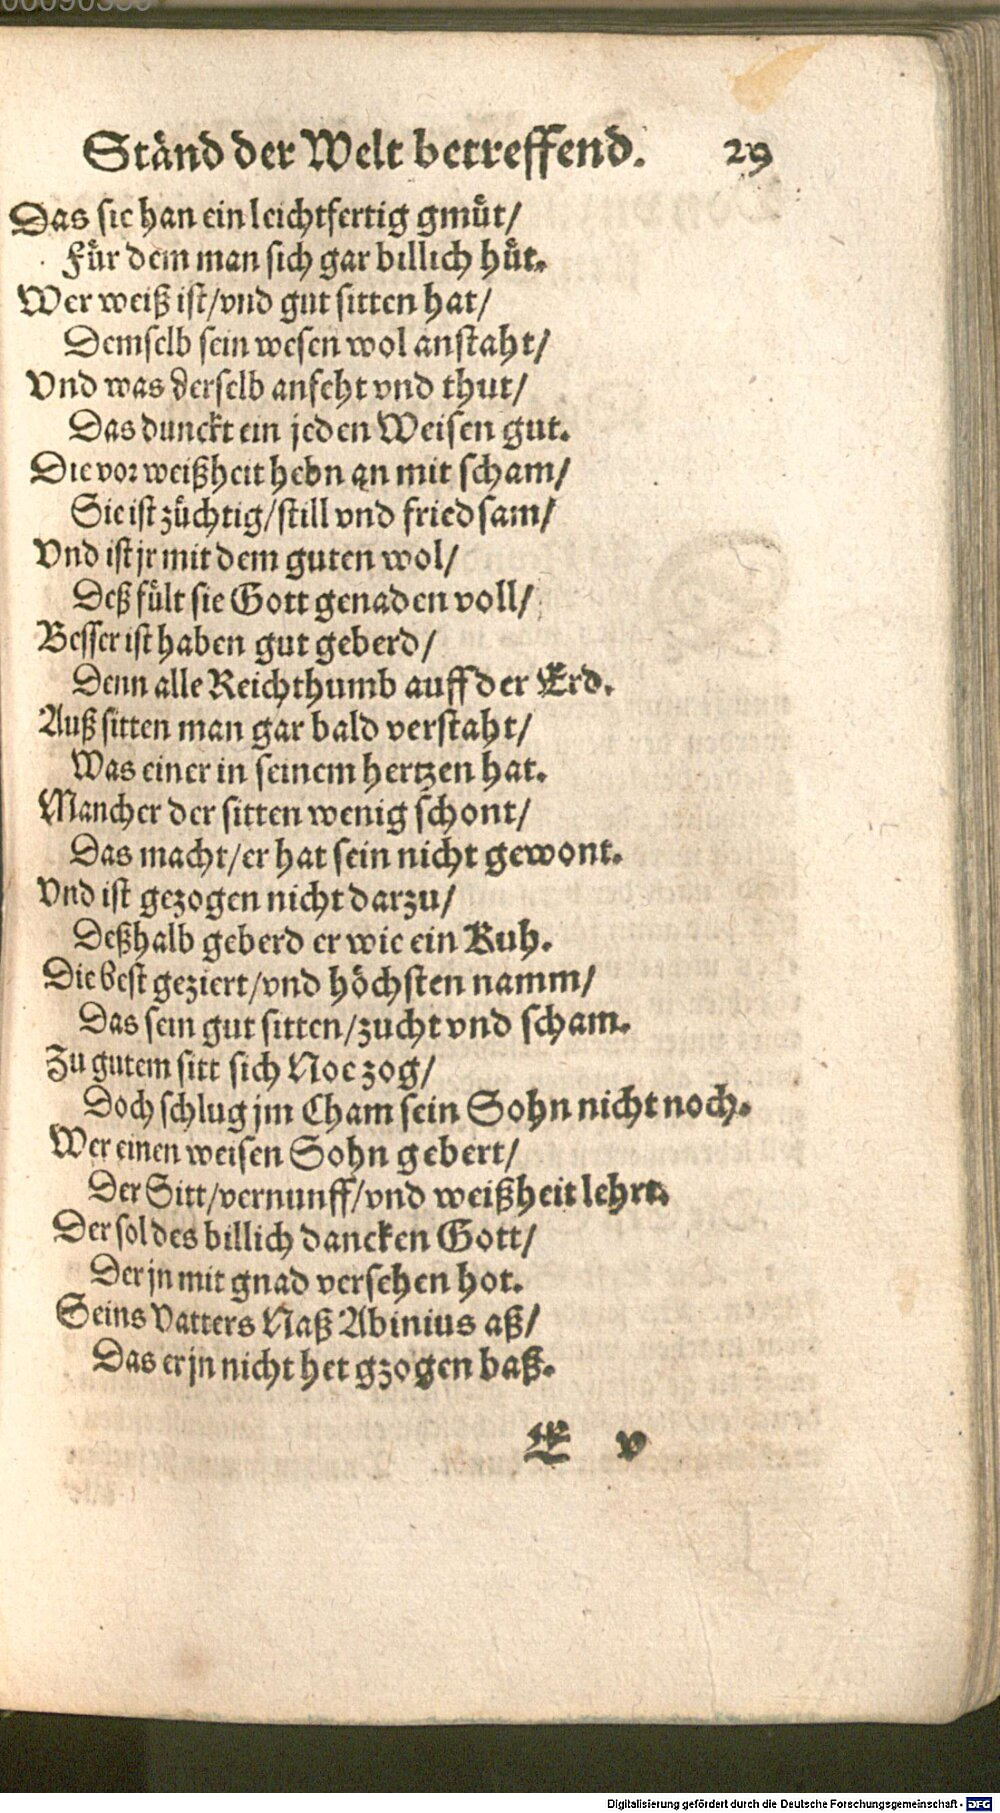 Ständ der Welt betreffend. 29
Das sie han ein leichtfertig gmüt/
Für dem man sich gar billich hüt.
Wer weiß ist/vnd gut sitten hat/
Demselb sein wesen wol anstaht/
Vnd was derselb anfeht vnd thut/
Das dunckt ein jeden Weisen gut.
Die vor weißheit hebn an mit scham/
Sie ist züchtig/still vnd friedsam/
Vnd ist jr mit dem guten wol/
Deß fült sie Gott genaden voll/
Besser ist haben gut geberd/
Denn alle Reichthumb auff der Erd.
Auß sitten man gar bald verstaht/
Was einer in seinem hertzen hat.
Mancher der sitten wenig schont/
Das macht/er hat sein nicht gewont.
Vnd ist gezogen nicht darzu/
Deßhalb geberd er wie ein Kuh.
Die best geziert/vnd höchsten namm/
Das sein gut sitten/zucht vnd scham.
Zu gutem sitt sich Noe zog/
Doch schlug jm Cham sein Sohn nicht noch.
Wer einen weisen Sohn gebert/
Der Sitt/vernunff/vnd weißheit lehrt.
Der sol des billich dancken Gott/
Der jn mit gnad versehen hot.
Seins Vatters Naß Abinius aß/
Das er jn nicht het gzogen baß.
E v
Digitalisierung gefördert durch die Deutsche Forschungsgemeinschaft - DFG